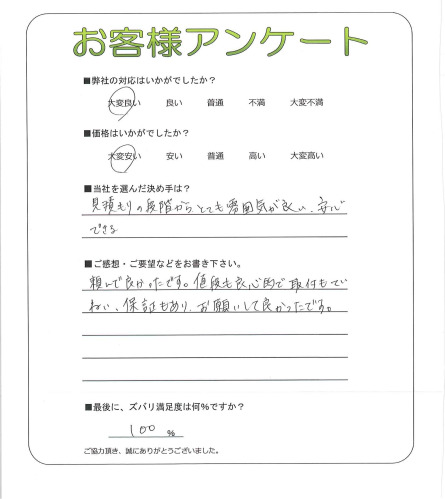 お客様アンケート
■弊社の対応はいかがでしたか？
大変良い 良い 普通 不満 大変不満
■価格はいかがでしたか？
大変安い 安い 普通 高い 大変高い
■当社を選んだ決め手は？
見積もりの段階からとても雰囲気が良い、安心
できる
■ご感想・ご要望などをお書き下さい。
頼んで良かったです。値段も良心的で取付もてい
ねい、保証もあり、お願いして良かったです。
■最後に、ズバリ満足度は何%ですか？
100 %
ご協力頂き、誠にありがとうございました。